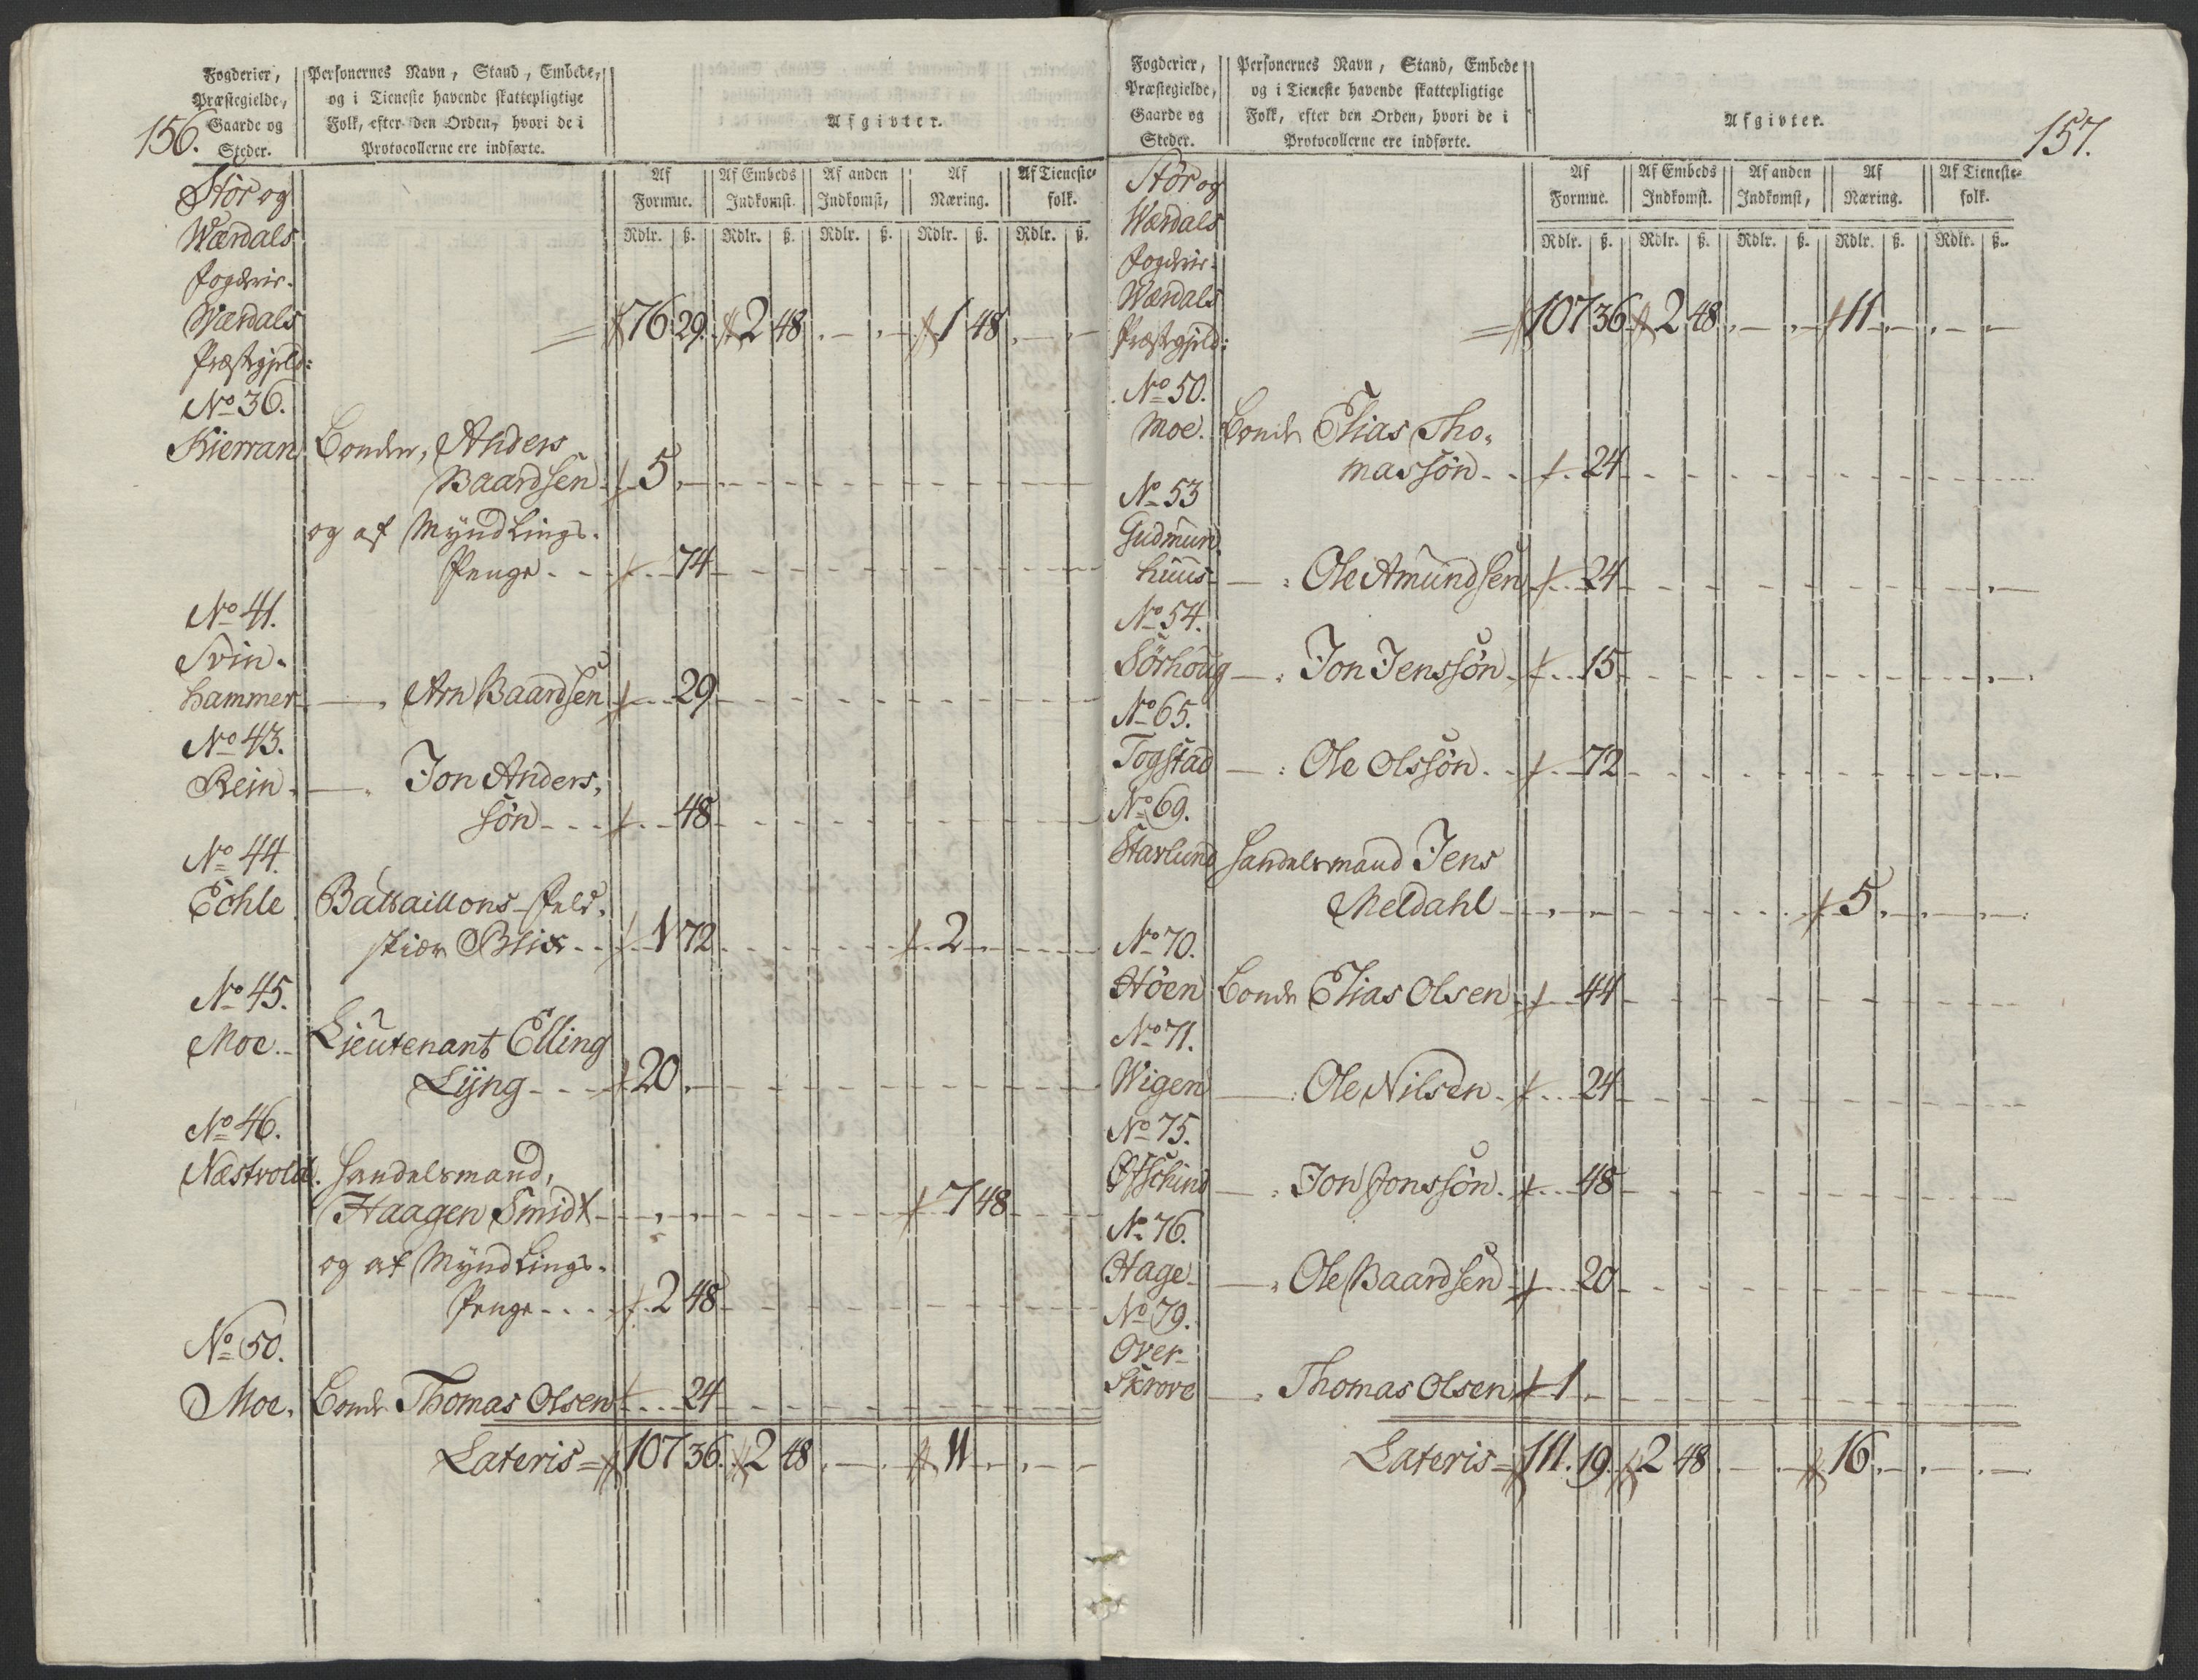 156.
Fogderier, Personernes Navn, Stand, Embede,
Præstegielde, og i Tieneste havende skattepligtige
Gaarde og Folk, efter den Orden, hvori de i Afgivter.
Steder. Protocollerne ere indførte.
Af Formue. Af Embeds Indkomst. Af anden Indkomst, Af Næring. Af Tieneste-folk.
Rdlr. ß. Rdlr. ß. Rdlr. ß. Rdlr. ß. Rdlr. ß.
Stör og
Wærdals
Fogderie.
Wærdals 76 29. 2 48 . — . — 1 48 . — . —
Præstgield:
No 36.
Kierran Bonden, Anders
Baardsen 5 . —
og af Myndlings-
Penge - - 74
No 41.
Svin-
hammer — . Arn Baardsen 29
No 43.
Rein. — . Jon Anders,
sön - - - 48
No 44.
Echle Battaillons-Feld,
skiær Blix - - 1 72 2 . —
No 45.
Moe. Lieutenant Elling
Lyng - - - 20 . —
No 46.
Næstvold. Handelsmand,
Haagen Smidt - . — 7 48
og af Myndlings-
Penge - - - 2 48
No 50.
Moe. Bonde Thomas Olsen 24
Lateris = 107 36. 2 48 . — . — 11 . — . — . —
157.
Fogderier, Personernes Navn, Stand, Embede
Præstegielde, og i Tieneste havende skattepligtige
Gaarde og Folk, efter den Orden, hvori de i Afgivter.
Steder. Protocollerne ere indførte.
Af Formue. Af Embeds Indkomst. Af anden Indkomst, Af Næring. Af Tieneste-folk.
Rdlr. ß. Rdlr. ß. Rdlr. ß. Rdlr. ß. Rdlr. ß.
Stör og
Wærdals
Fogderie.
Wærdals = 107 36 2 48 . — . — 11 . — . — . —
Præstgield:
No 50.
Moe. Bonde Elias Tho-
massön - - 24
No 53
Gudmun,
huus — : Ole Amundsen 24
No 54.
Sörhoug — : Jon Jenssön 15
No 65.
Togstad — : Ole Olssön - - 72
No 69.
Starlund Handelsmand Jens
Meldahl - . — 5 . —
No 70.
Höen Bonde Elias Olsen 44
No 71.
Wigen — : Ole Nilsen - 24
No 75.
Östchind — : Jon Jonssön - 48
No 76.
Hage — : Ole Baardsen 20
No 79.
Over-
Skrove — . Thomas Olsen 1 . —
Lateris = 111. 19. 2 48 . — . — 16 . — . — . —